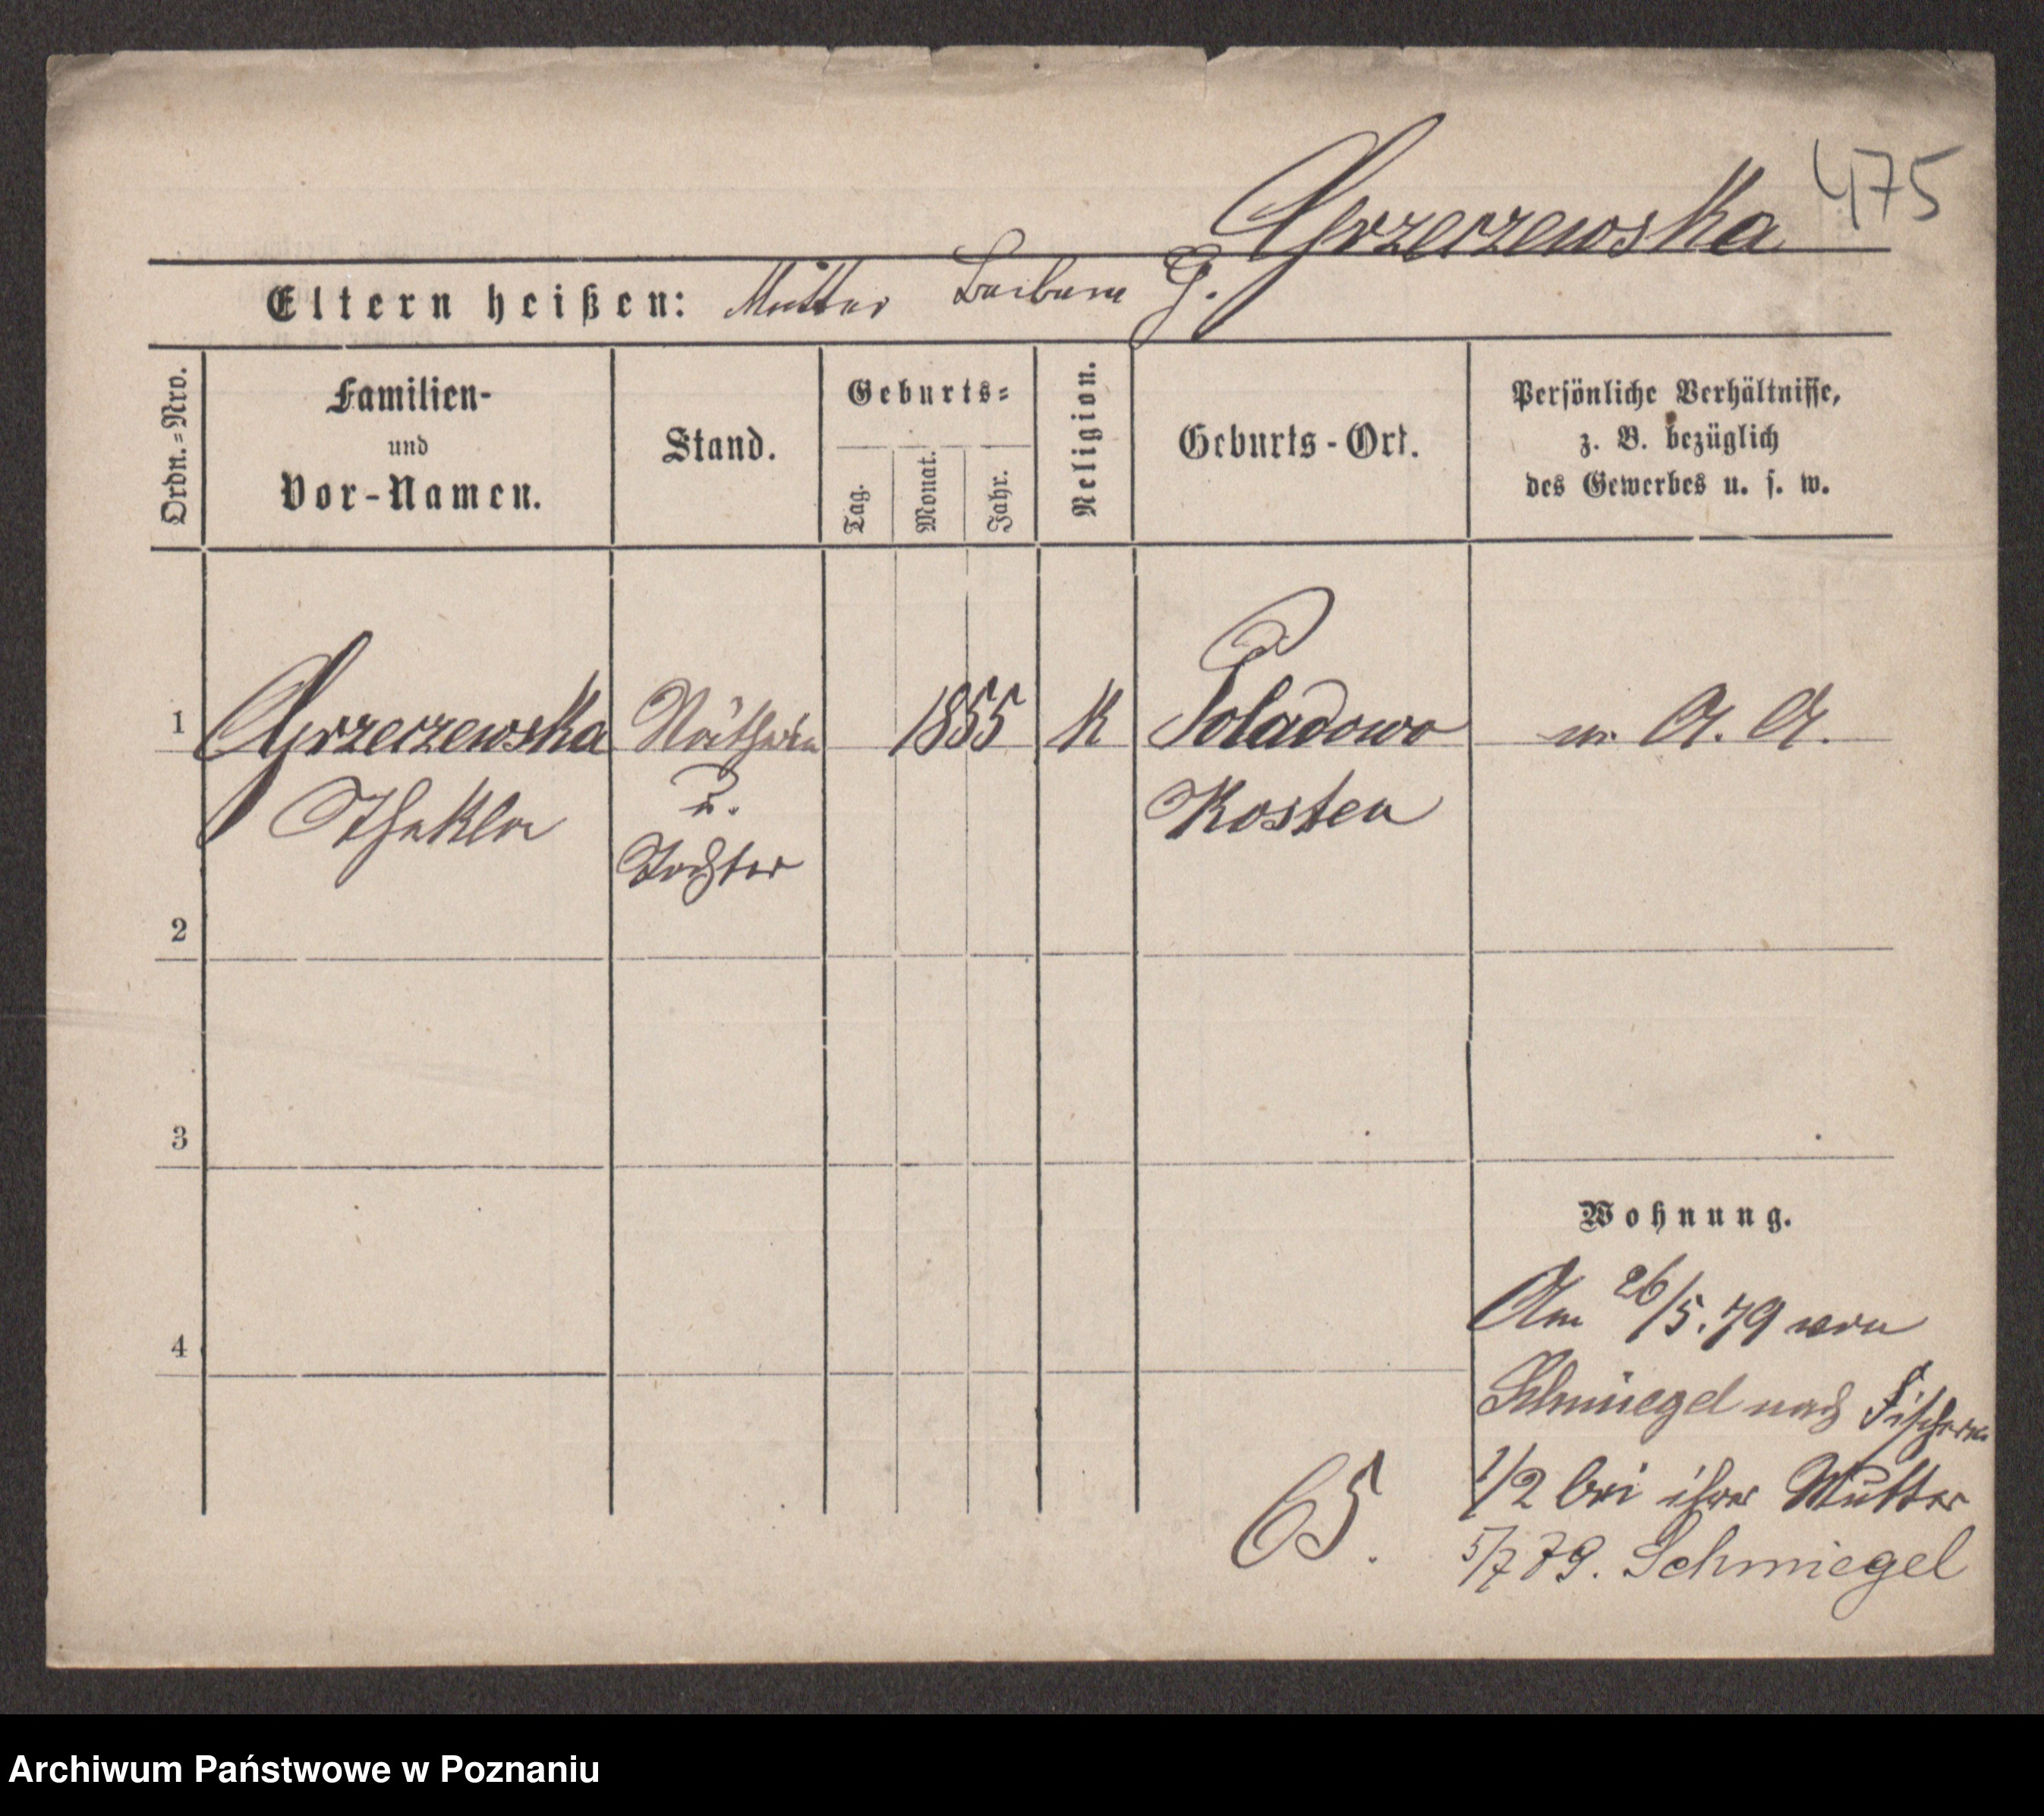 475
Grzerzewska
Eltern heißen: Mutter Barbara G.
Ordn.=Nro.
Familien-
und
Vor-Namen.
Stand.
Geburts=
Tag.
Monat.
Jahr.
Religion.
Geburts-Ort.
Persönliche Verhältnisse,
z. B. bezüglich
des Gewerbes u. s. w.
1 Grzerzewska Nätherin 1855 K Poladowo A. A.
Thekla u. Kosten
Tochter
2
3
Wohnung.
4
Am 26/5.79 von
Schmiegel nach Fischerei
1/2 bei ihrer Mutter
65.
5/7 79. Schmiegel
Archiwum Państwowe w Poznaniu